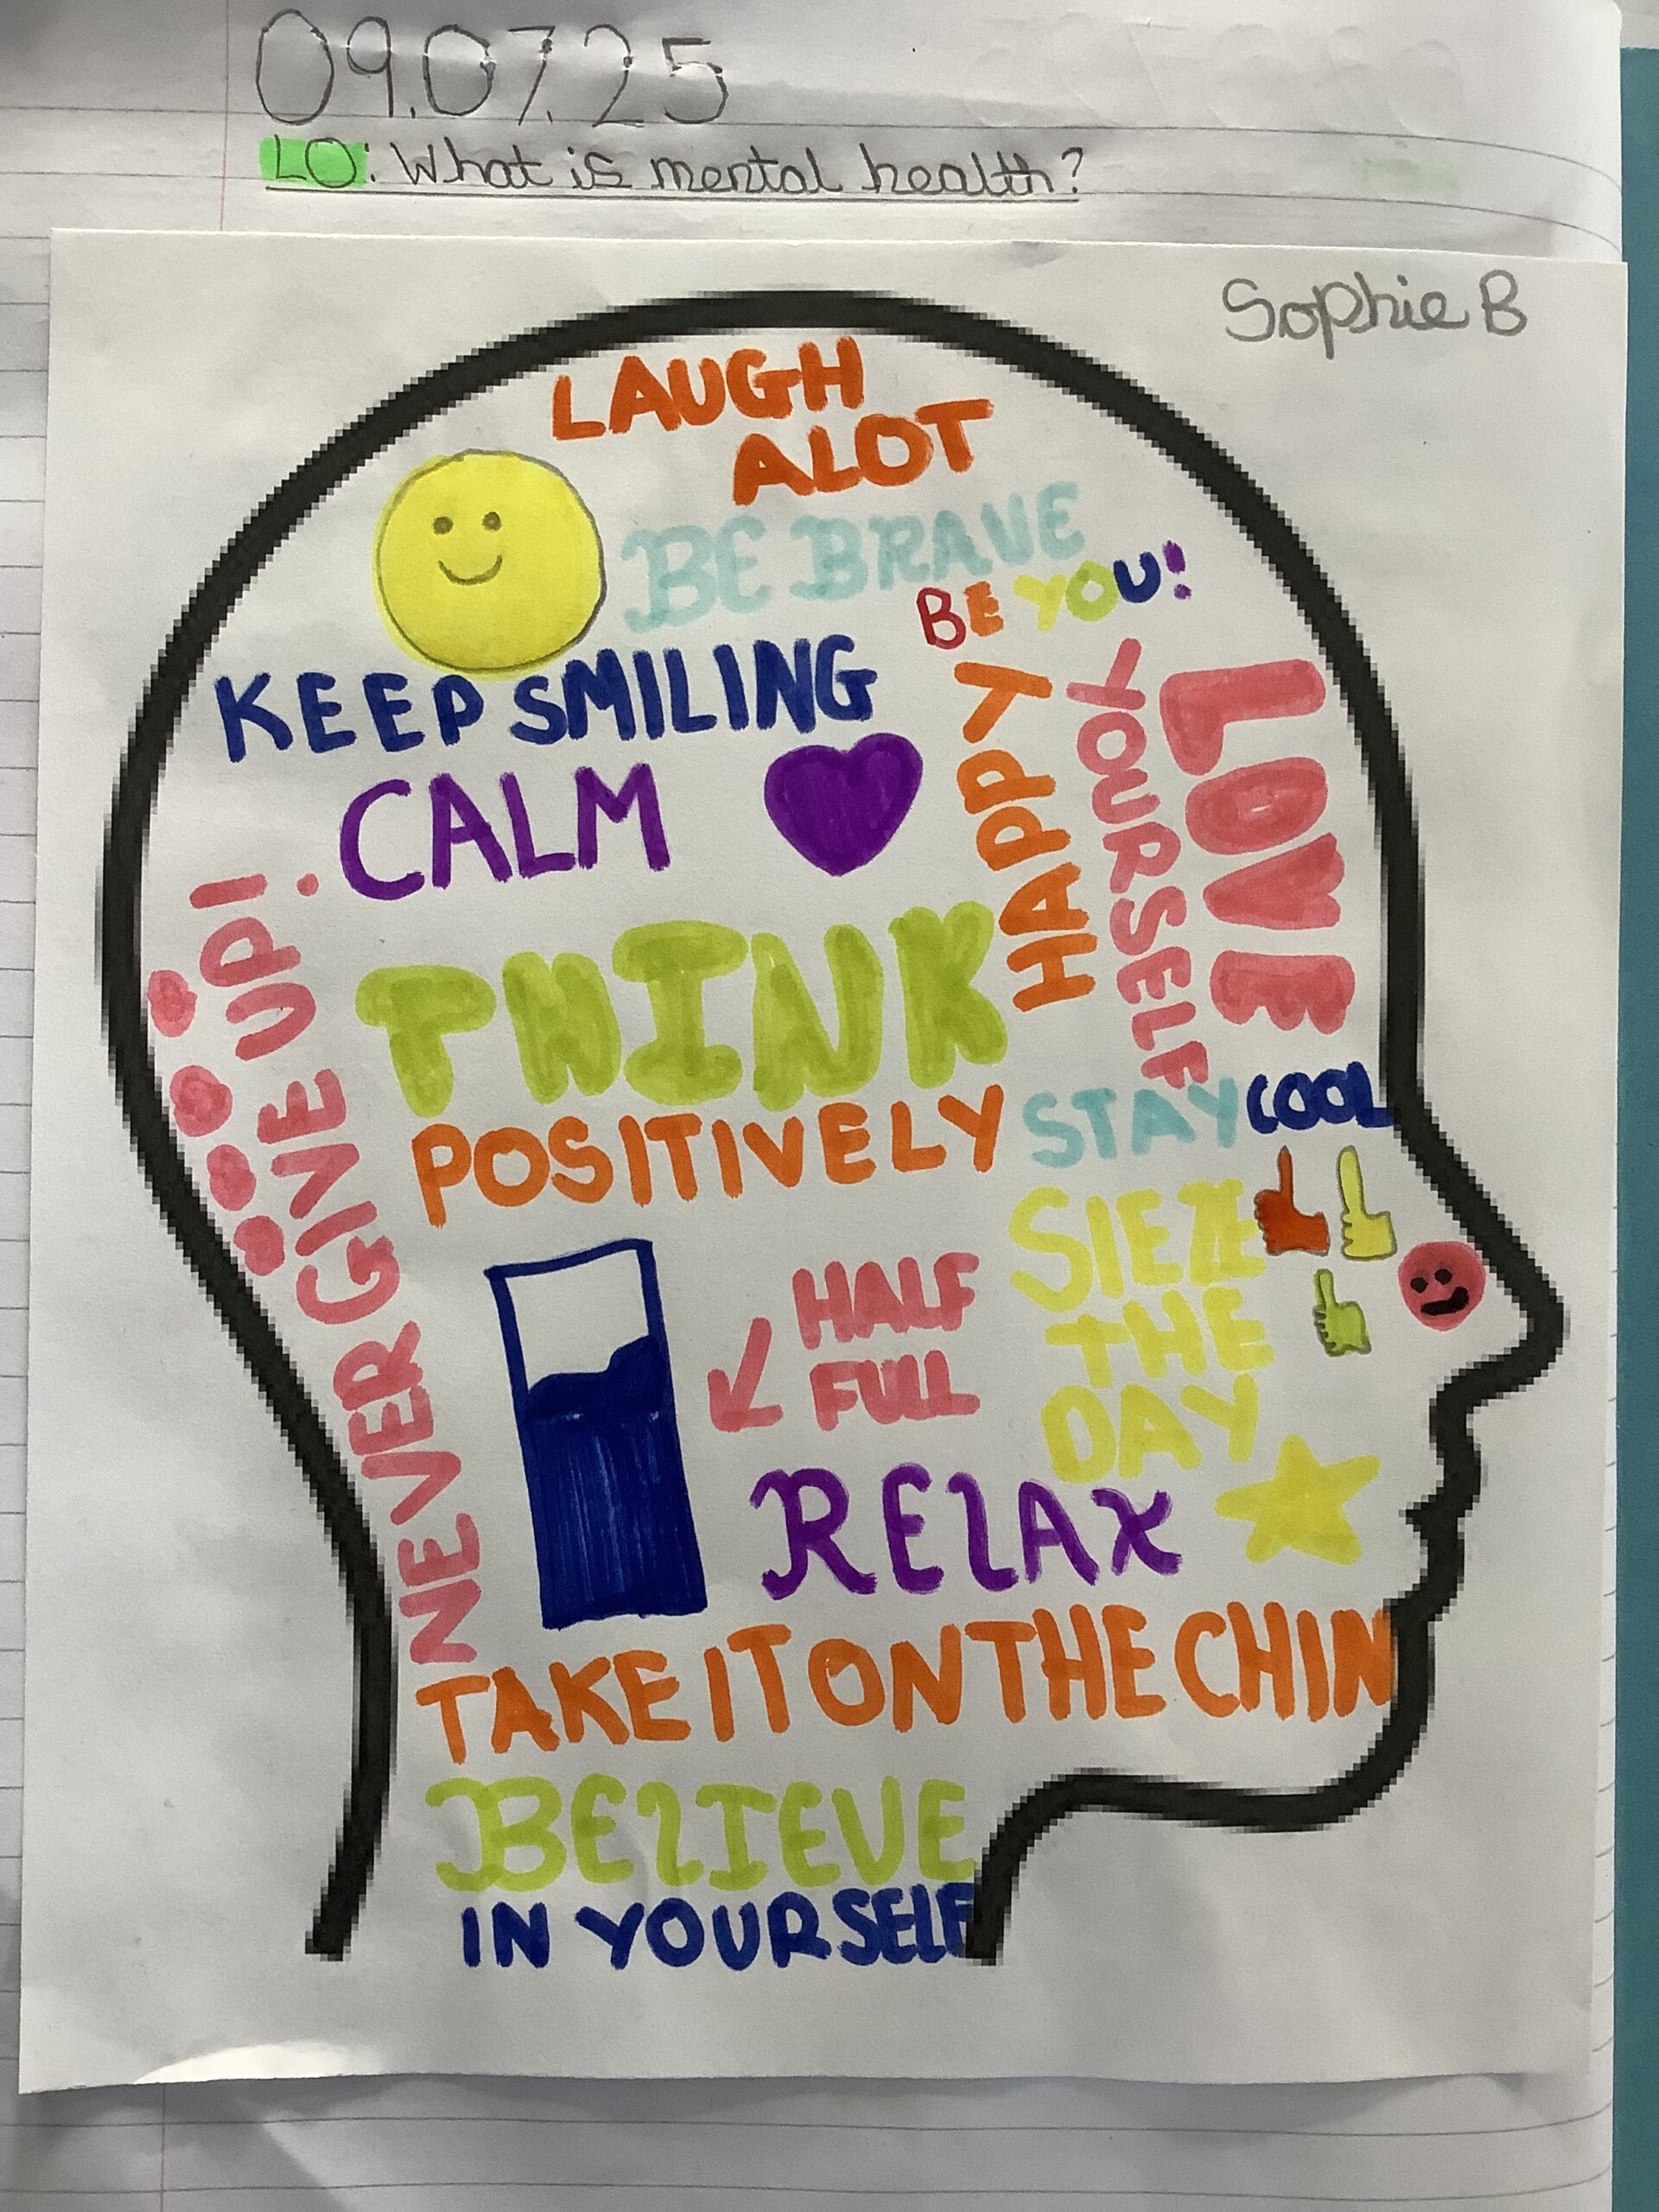 09.07.25
LO: What is mental health?
Sophie B
LAUGH
ALOT
BE BRAVE
BE YOU!
KEEP SMILING
CALM
HAPPY
YOURSELF
LOVE
THINK
POSITIVELY
STAY COOL
NEVER GIVE UP!
SIEZE
THE
DAY
HALF
FULL
RELAX
TAKE IT ON THE CHIN
BELIEVE
IN YOURSELF